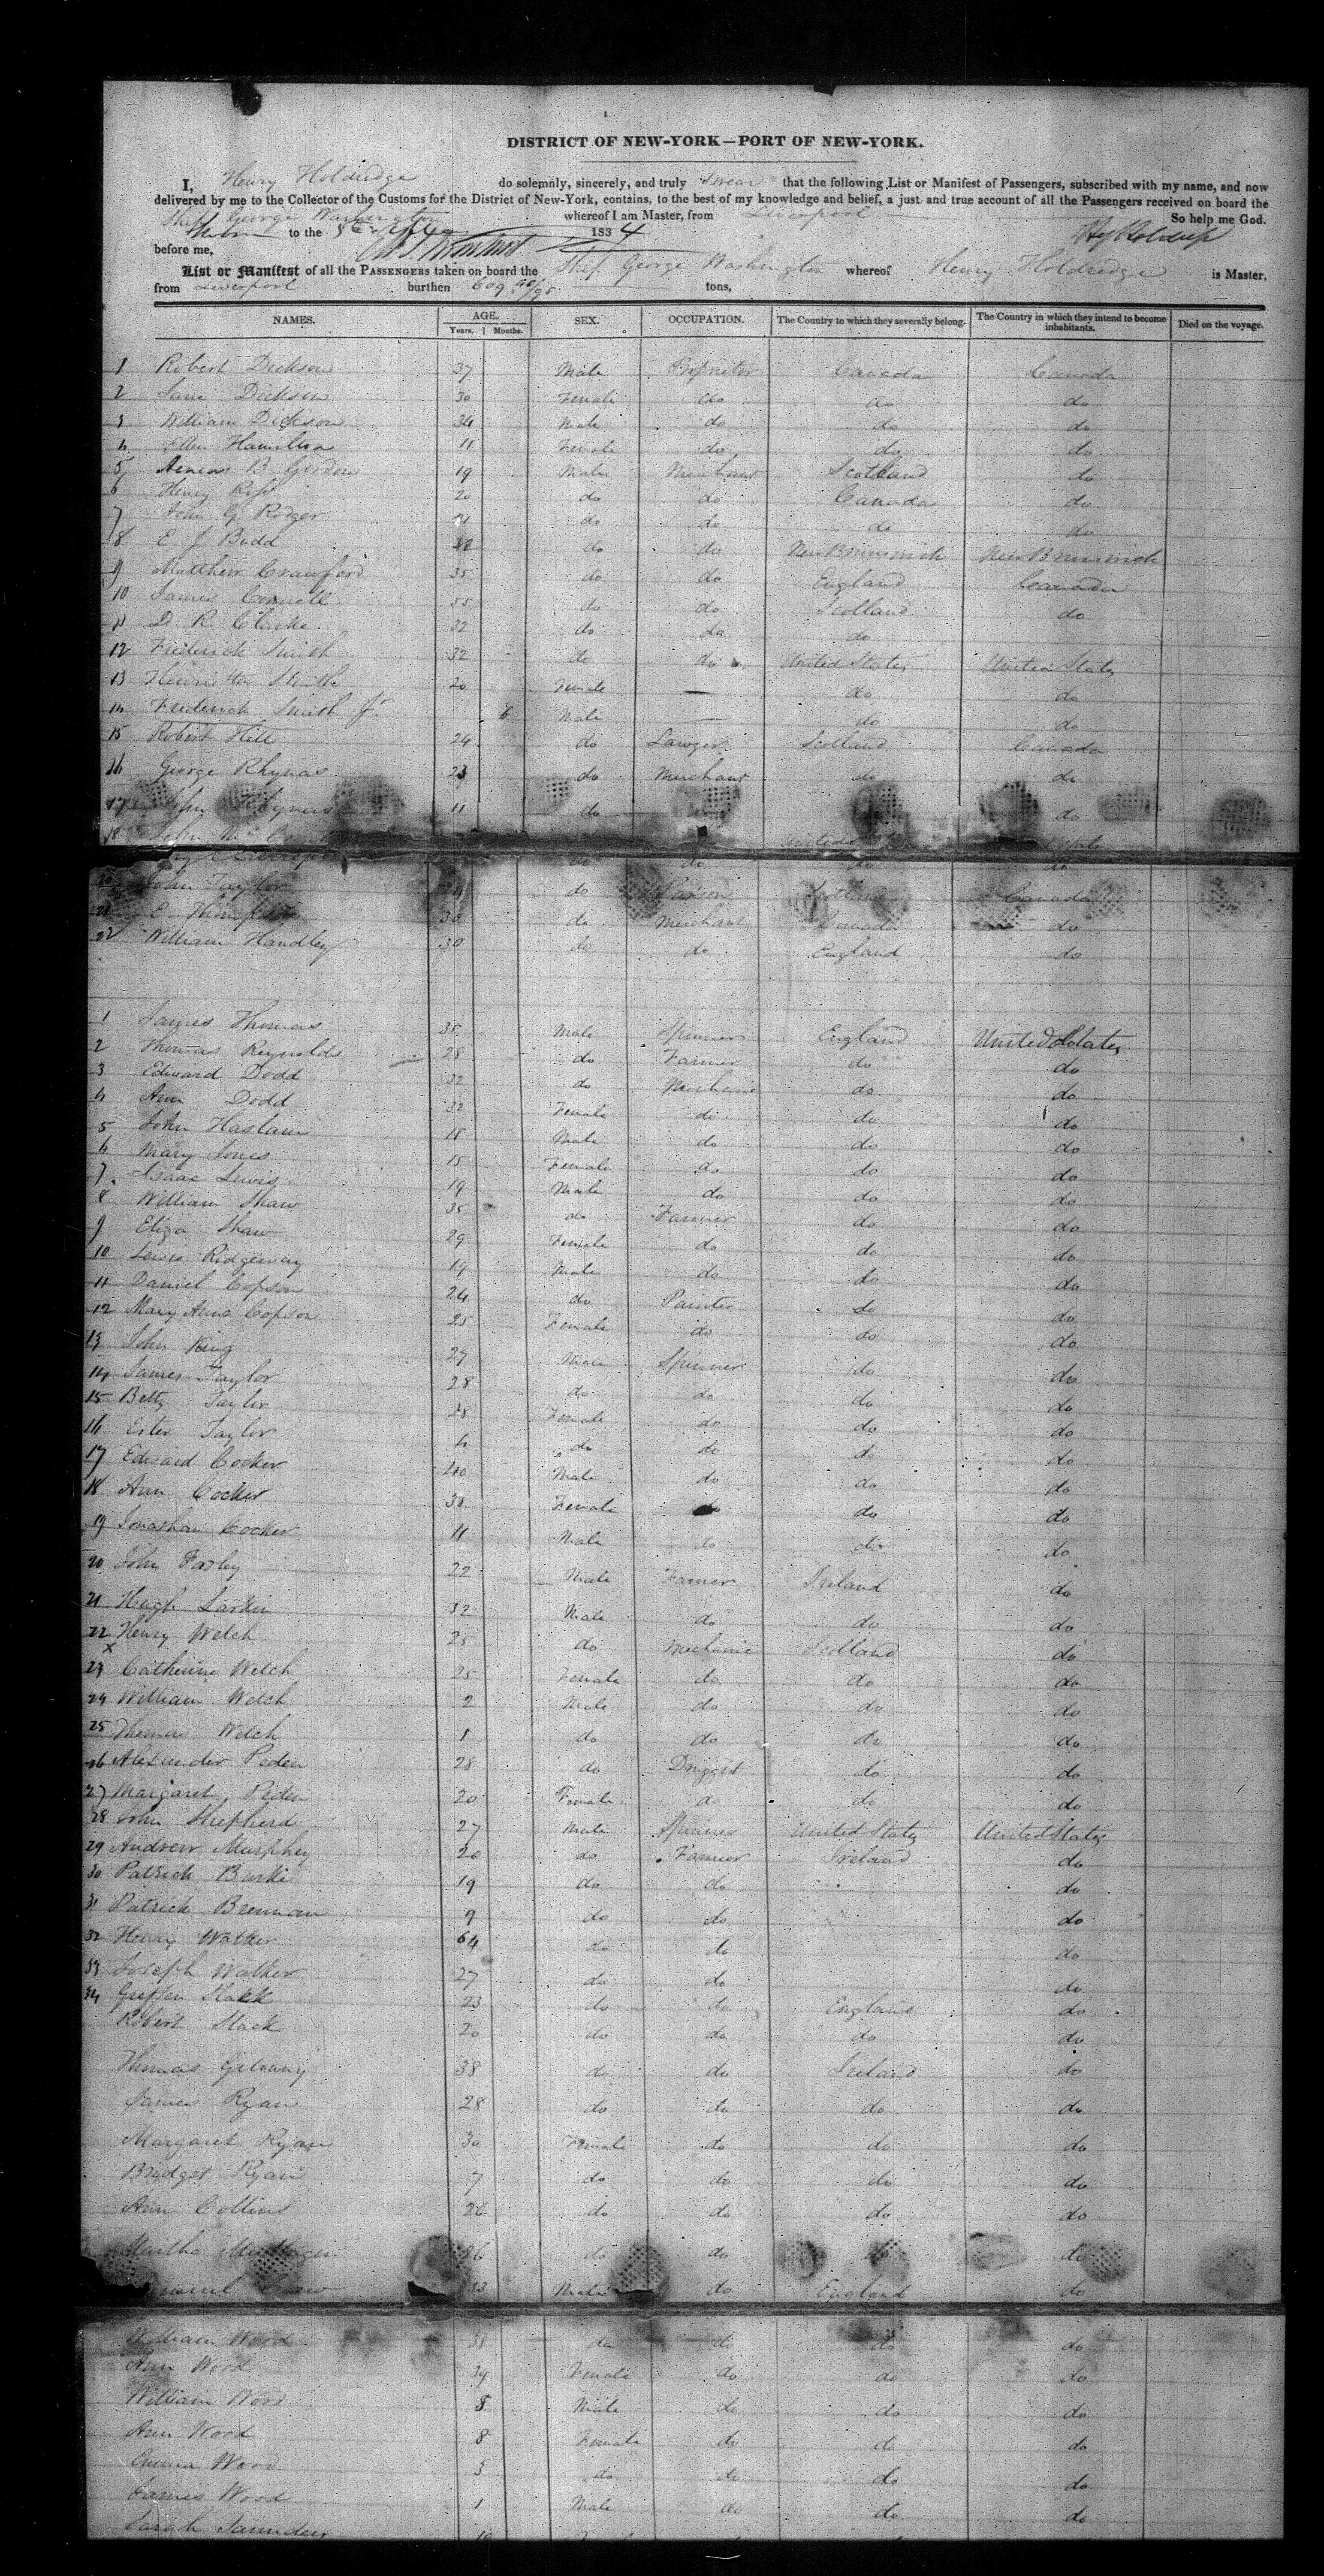 DISTRICT OF NEW-YORK—PORT OF NEW-YORK.
I, Henry Holdredge do solemnly, sincerely, and truly swear that the following List or Manifest of Passengers, subscribed with my name, and now
delivered by me to the Collector of the Customs for the District of New-York, contains, to the best of my knowledge and belief, a just and true account of all the Passengers received on board the
Ship George Washington whereof I am Master, from Liverpool So help me God.
to the 1834
before me,
List or Manifest of all the PASSENGERS taken on board the Ship George Washington whereof Henry Holdredge is Master,
from Liverpool burthen 609 tons,
NAMES. AGE. Years. Months. SEX. OCCUPATION. The Country to which they severally belong. The Country in which they intend to become inhabitants. Died on the voyage.
1 Robert Dickson 37 Male Canada Canada
2 Jane Dickson 30 Female do do do
3 William Dickson 34 Male do do do
4 Ellen Hamilton 11 Female do do do
5 Aeneas B. Gordon 19 Male Merchant Scotland do
6 Henry 20 do do Canada do
7 John G Rodger 21 do do do do
8 E J Budd do do New Brunswick New Brunswick
9 Matthew Crawford 35 do do England Canada
10 James 55 do do Scotland do
11 D R Clarke 32 do do do
12 Frederick Smith 32 do do United States United States
13 Henrietta Smith 20 Female — do do
14 Frederick Smith Jr 6 Male — do do
15 Robert Hill 24 do Lawyer Scotland Canada
16 George Rhynas 23 do Merchant do do
17 John Rhynas 11 do do
18 John
do do do do
20 John Taylor do Scotland Canada
21 E 30 do Merchant Canada do
22 William Handley 30 do do England do
1 James Thomas 35 Male Spinner England United States
2 Thomas Reynolds 28 do Farmer do do
3 Edward Dodd 32 do Mechanic do do
4 Ann Dodd 32 Female do do do
5 John Haslam 18 Male do do do
6 Mary Jones 18 Female do do do
7 Isaac Lewis 19 Male do do do
8 William Shaw 35 do Farmer do do
9 Eliza Shaw 29 Female do do do
10 Lewis Ridgeway 19 Male do do do
11 Daniel Copson 24 do Painter do do
12 Mary Ann Copson 25 Female do do do
13 John King 27 Male Spinner do do
14 James Taylor 28 do do do do
15 Betty Taylor 28 Female do do do
16 Ester Taylor 4 do do do do
17 Edward Cocker 40 Male do do do
18 Ann Cocker 38 Female do do do
19 Jonathan Cocker 11 Male do do do
20 John Farley 22 Male Farmer Ireland do
21 Hugh Larkin 32 Male do do do
22 Henry Welch 25 do Mechanic Scotland do
x
23 Catherine Welch 25 Female do do do
24 William Welch 2 Male do do do
25 Thomas Welch 1 do do do do
26 Alexander Peden 28 do Druggist do do
27 Margaret Peden 20 Female do do do
28 John Shepherd 27 Male Spinner United States United States
29 Andrew Murphey 20 do Farmer Ireland do
30 Patrick Burke 19 do do do
31 Patrick Brennan 9 do do do
32 Henry Walker 64 do do do
33 Joseph Walker 27 do do do
34 Griffen Slack 23 do do England do
Robert Slack 20 do do do do
Thomas 38 do do Ireland do
James Ryan 28 do do do do
Margaret Ryan 30 Female do do do
Bridget Ryan 7 do do do do
Ann Collins 26 do do do do
Martha do do do do
Male do England do
William Wood 38 do do do do
Ann Wood 34 Female do do do
William Wood 8 Male do do do
Ann Wood 8 Female do do do
Emma Wood 3 do do do do
James Wood 1 Male do do do
Sarah Saunders